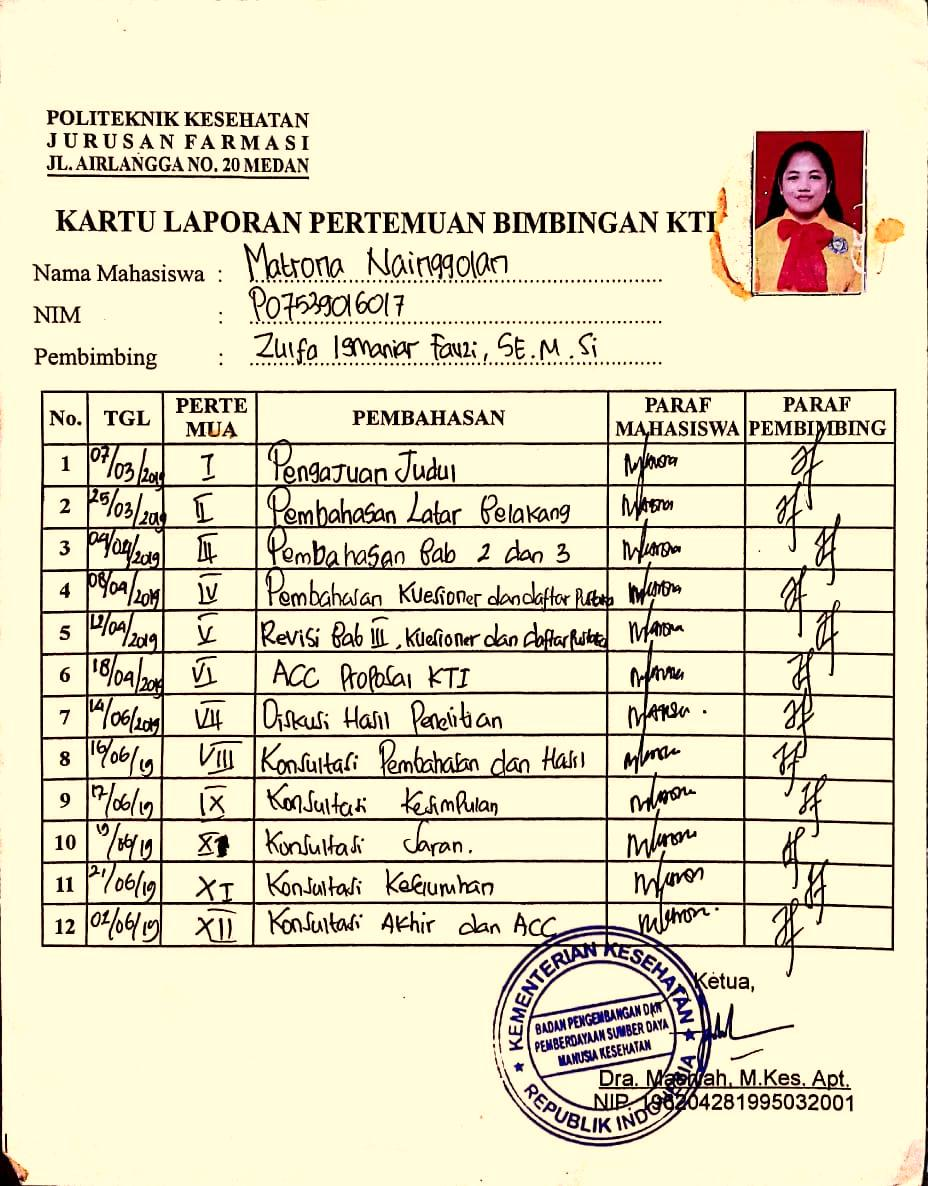 POLITEKNIK KESEHATAN
JURUSAN FARMASI
JL. AIRLANGGA NO. 20 MEDAN
KARTU LAPORAN PERTEMUAN BIMBINGAN KTI
Nama Mahasiswa : Matrona Nainggolan
NIM : P07539016017
Pembimbing : Zulfa Ismaniar Fauzi, SE.M.Si
No. TGL PERTE MUA PEMBAHASAN PARAF MAHASISWA PARAF PEMBIMBING
1 07/03/2019 I Pengajuan Judul
2 25/03/2019 II Pembahasan Latar Belakang
3 04/04/2019 III Pembahasan Bab 2 dan 3
4 08/04/2019 IV Pembahasan Kuesioner dan daftar Pustaka
5 12/04/2019 V Revisi Bab III, Kuesioner dan Daftar Pustaka
6 18/04/2019 VI ACC Proposal KTI
7 14/06/2019 VII Diskusi Hasil Penelitian
8 16/06/19 VIII Konsultasi Pembahasan dan Hasil
9 17/06/19 IX Konsultasi Kesimpulan
10 19/06/19 X Konsultasi Saran.
11 21/06/19 XI Konsultasi Keseluruhan
12 02/06/19 XII Konsultasi Akhir dan ACC
KEMENTERIAN KESEHATAN
BADAN PENGEMBANGAN DAN
PEMBERDAYAAN SUMBER DAYA
MANUSIA KESEHATAN
REPUBLIK INDONESIA
Ketua,
Dra. Masniah, M.Kes. Apt.
NIP. 196204281995032001